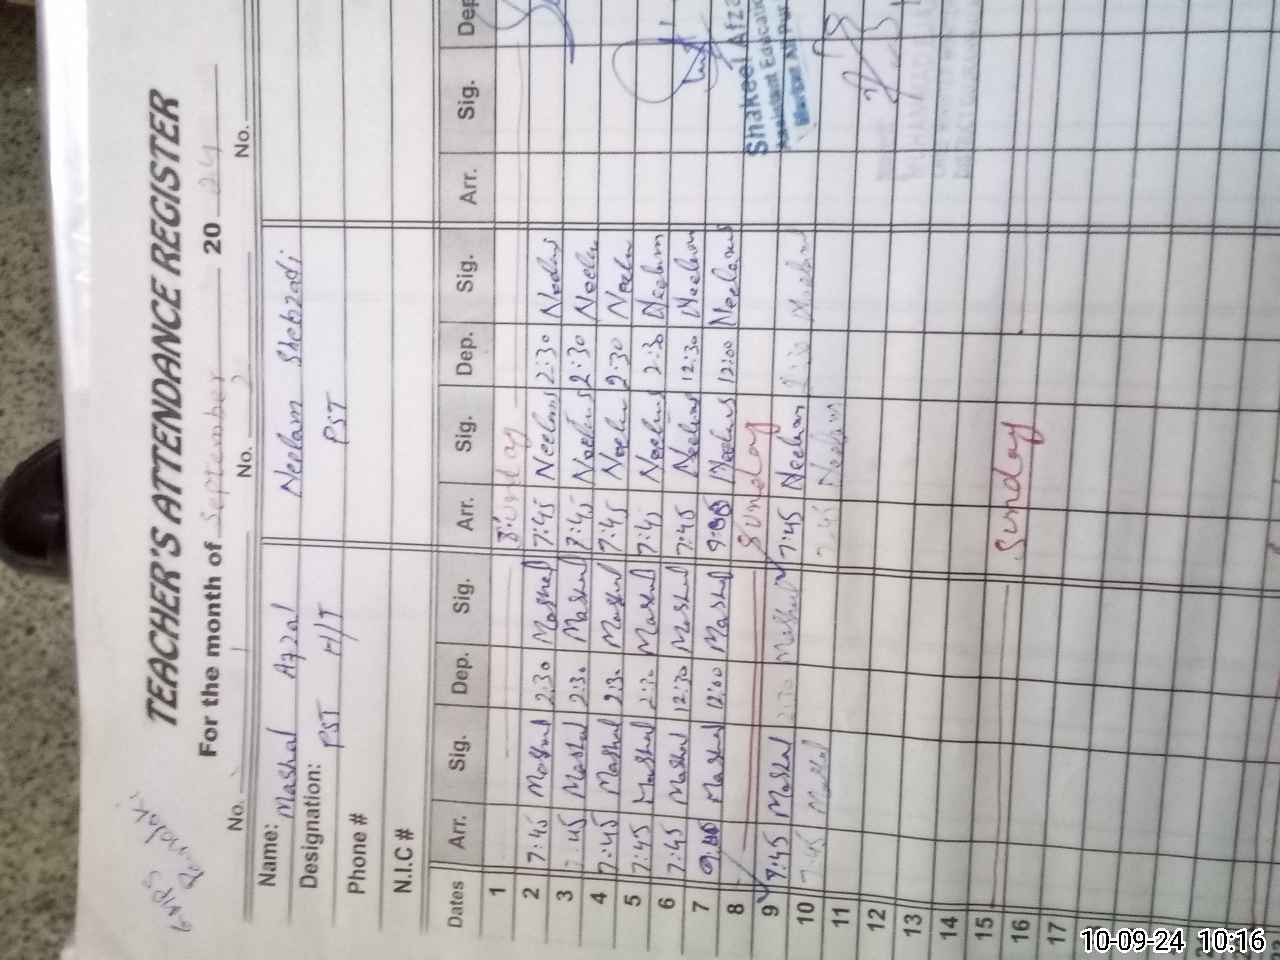 TEACHER'S ATTENDANCE REGISTER
For the month of September 20 24
No. 1 No. 2 No.
Name: Mashal Afzal Neelam Shehzadi
Designation: PST H/T PST
Phone #
N.I.C #
Dates Arr. Sig. Dep. Sig. Arr. Sig. Dep. Sig. Arr. Sig. Dep.
1 Sunday
2 7:45 Mashal 2:30 Mashal 7:45 Neelam 2:30 Neelam
3 7:45 Mashal 2:30 Mashal 7:45 Neelam 2:30 Neelam
4 7:45 Mashal 2:30 Mashal 7:45 Neelam 2:30 Neelam
5 7:45 Mashal 2:30 Mashal 7:45 Neelam 2:30 Neelam
6 7:45 Mashal 12:30 Mashal 7:45 Neelam 12:30 Neelam
7 Mashal 12:00 Mashal Neelam 12:00 Neelam
8 Sunday
9 7:45 Mashal 2:30 Mashal 7:45 Neelam 2:30 Neelam
10 7:45 Mashal 7:45 Neelam
11
12
13
14
15 Sunday
16
17
Shakeel Afza
Assistant Educati
10-09-24 10:16